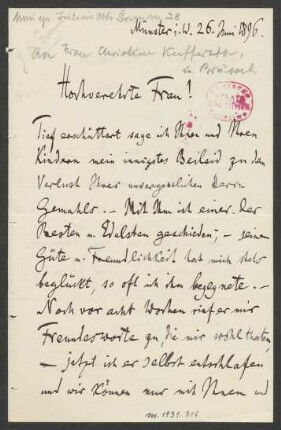 Münster i. W. 26. Juni 1896.
An Frau Christine Kufferath,
in Brüssel
Hochverehrte Frau!
Tief erschüttert sage ich Ihnen und Ihren
Kindern mein innigstes Beileid zu dem
Verlust Ihres unvergesslichen Herrn
Gemahls. – Mit Ihm ist einer der
Besten u. Edelsten geschieden; – seine
Güte u. Freundlichkeit hat mich stets
beglückt, so oft ich ihm begegnete. –
Noch vor acht Wochen rief er mir
Freundesworte zu, die mir wohl thaten,
– jetzt ist er selbst entschlafen
und wir können nur mit Ihnen und
M. 1931. 316